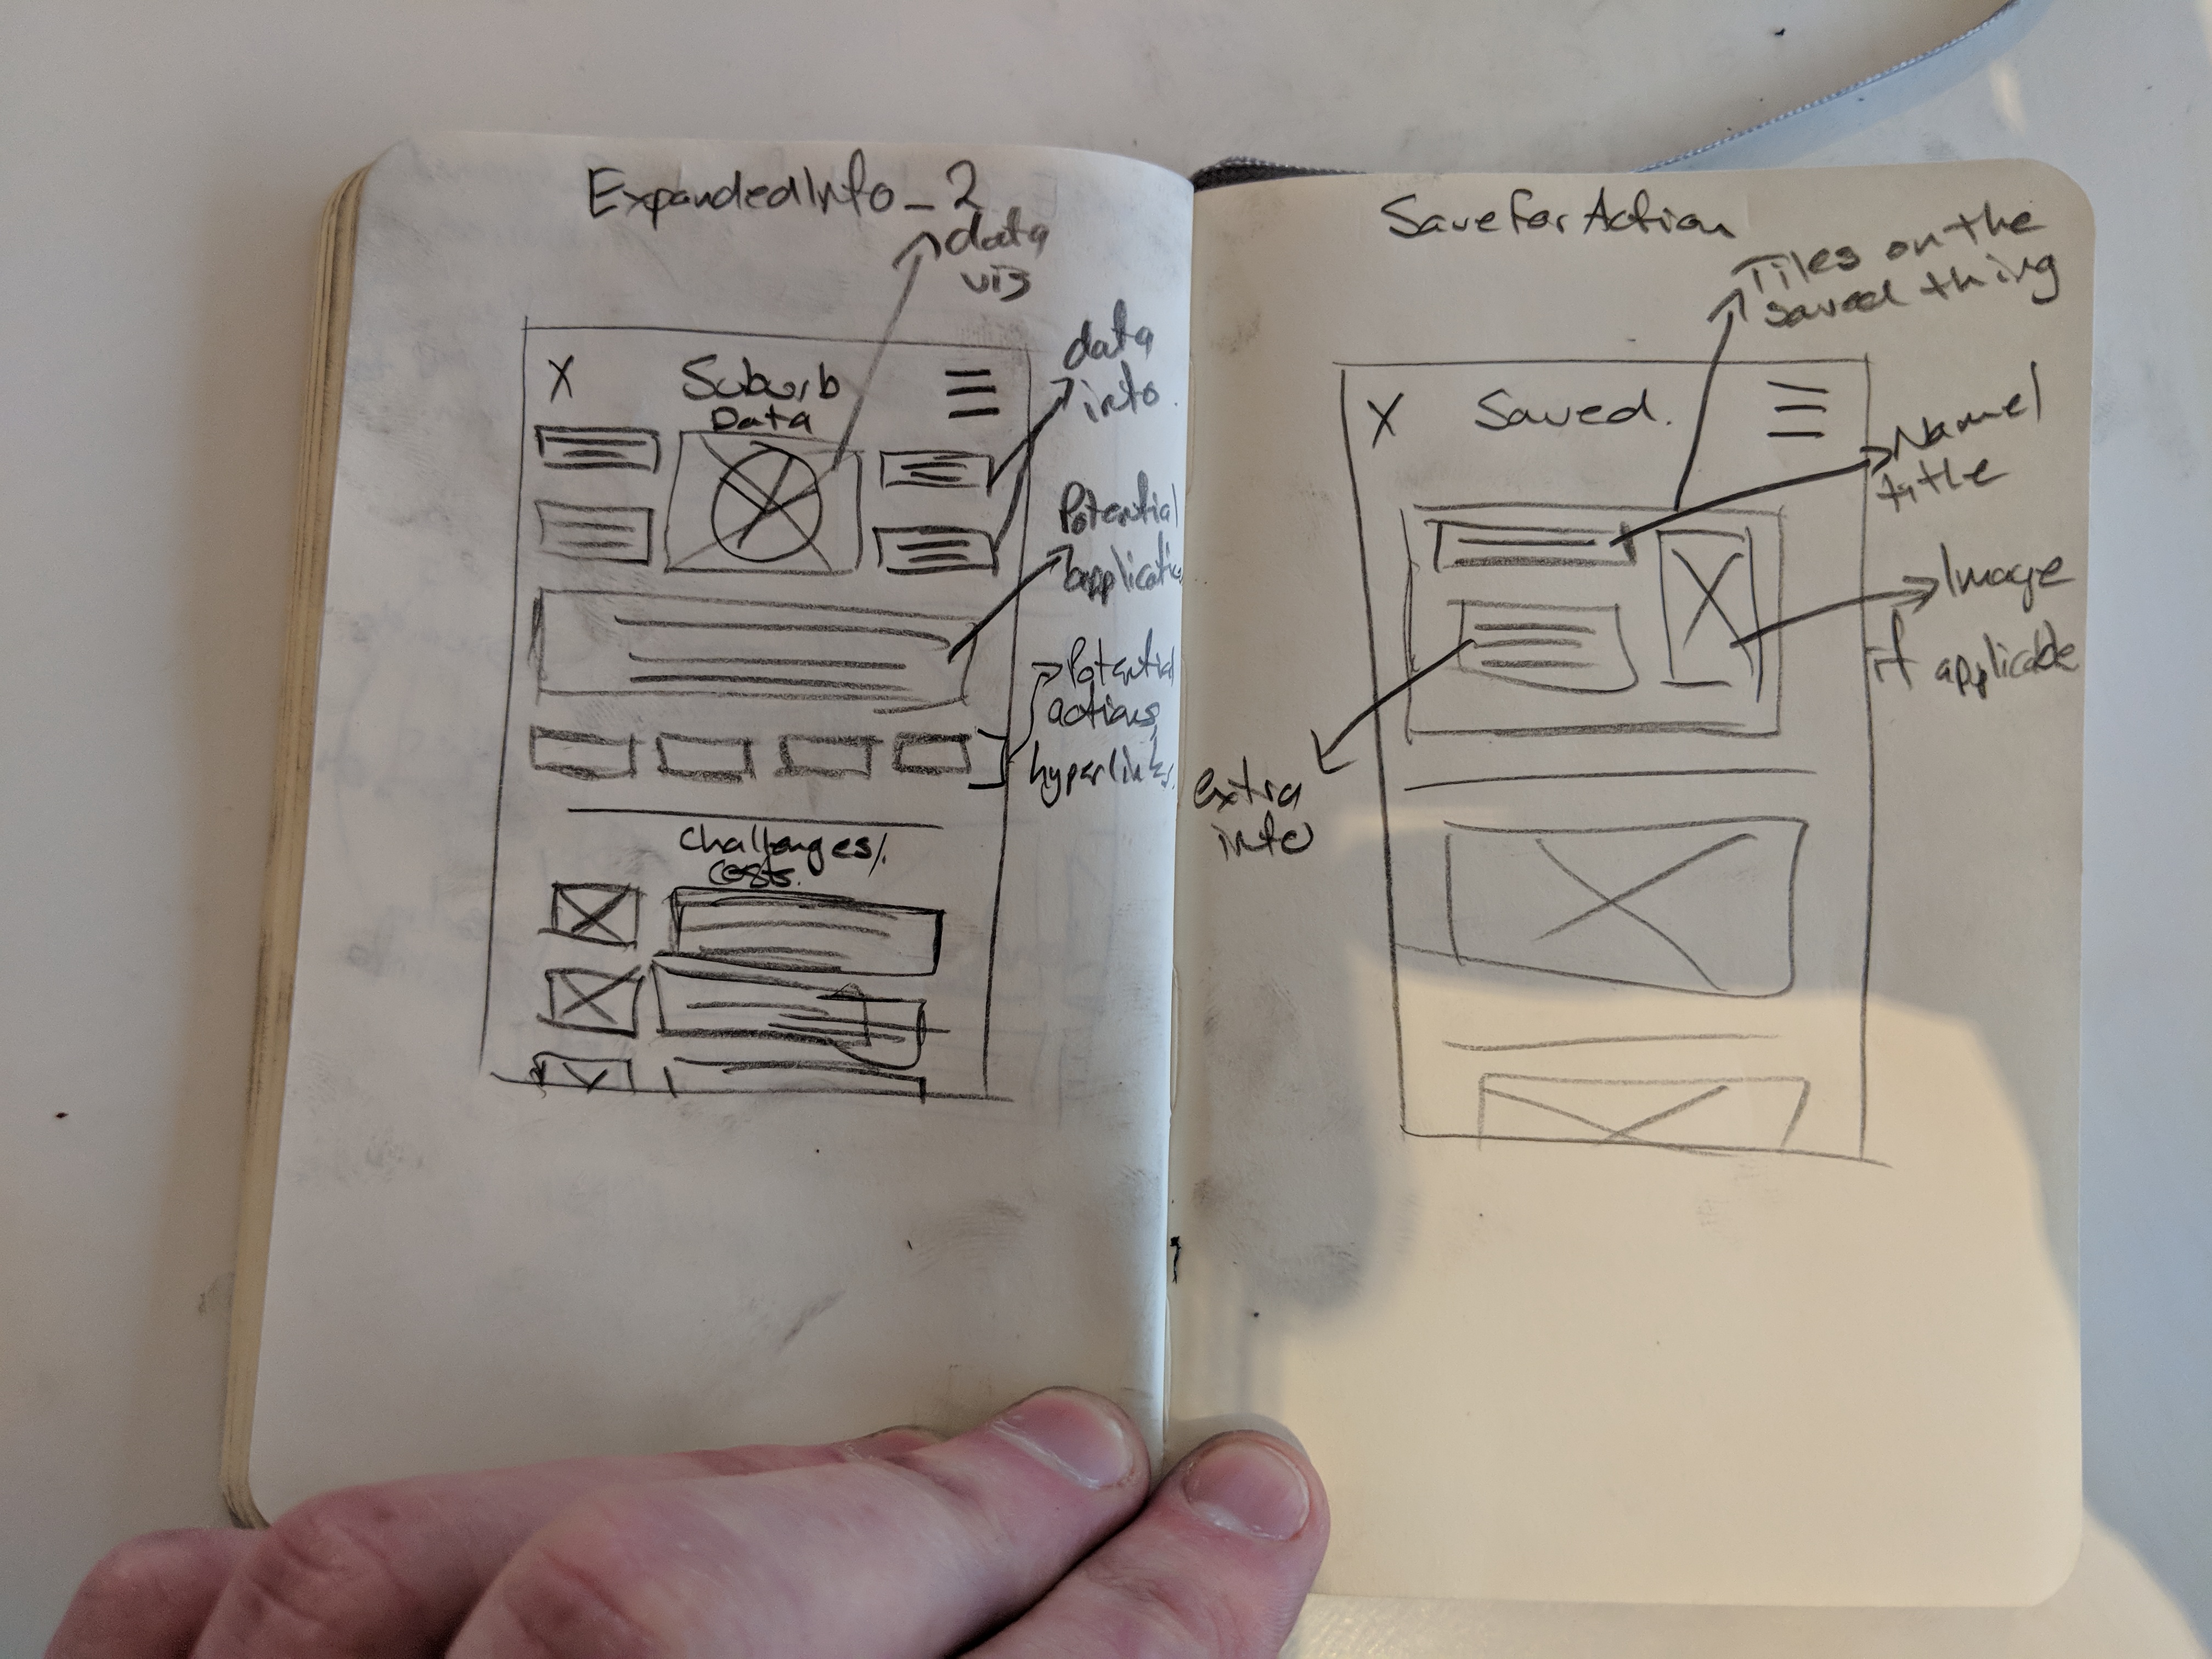 ExpandedInfo_2
data
viz
X
Suburb
Data
data
info.
Potential
applicatio
Potential
actions
hyperlinks.
Challenges/
costs.
SaveForAction
Tiles on the
saved thing
X Saved.
Name/
title
Image
if applicable
extra
info